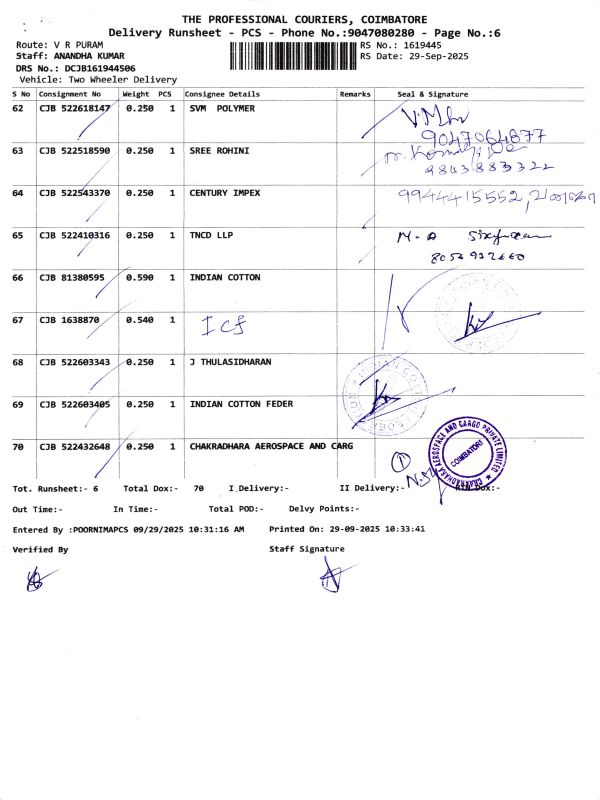 THE PROFESSIONAL COURIERS, COIMBATORE
Delivery Runsheet - PCS - Phone No.:9047080280 - Page No.:6
Route: V R PURAM RS No.: 1619445
Staff: ANANDHA KUMAR RS Date: 29-Sep-2025
DRS No.: DCJB161944506
Vehicle: Two Wheeler Delivery
S No Consignment No Weight PCS Consignee Details Remarks Seal & Signature
62 CJB 522618147 0.250 1 SVM POLYMER
9047064877
63 CJB 522518590 0.250 1 SREE ROHINI
9843883322
64 CJB 522543370 0.250 1 CENTURY IMPEX 9944415552
65 CJB 522410316 0.250 1 TNCD LLP M.A
66 CJB 81380595 0.590 1 INDIAN COTTON
67 CJB 1638870 0.540 1 ICF
68 CJB 522603343 0.250 1 J THULASIDHARAN
69 CJB 522603405 0.250 1 INDIAN COTTON FEDER
70 CJB 522432648 0.250 1 CHAKRADHARA AEROSPACE AND CARG
CHAKRADHARA AEROSPACE AND CARGO PRIVATE LIMITED
COIMBATORE
1
Tot. Runsheet:- 6 Total Dox:- 70 I Delivery:- II Delivery:- RTN Dox:-
Out Time:- In Time:- Total POD:- Delvy Points:-
Entered By :POORNIMAPCS 09/29/2025 10:31:16 AM Printed On: 29-09-2025 10:33:41
Verified By Staff Signature